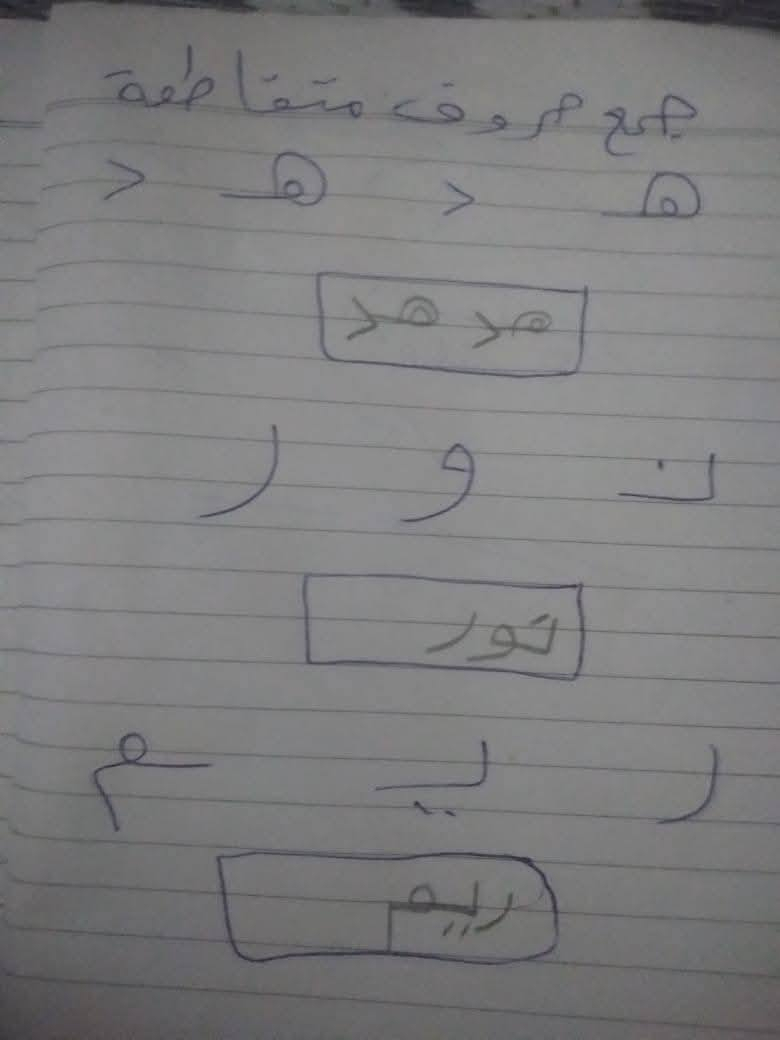 جمع حروف متقاطعة
هـ د هـ د
هدهد
نـ و ر
نور
ر يـ م
ريم